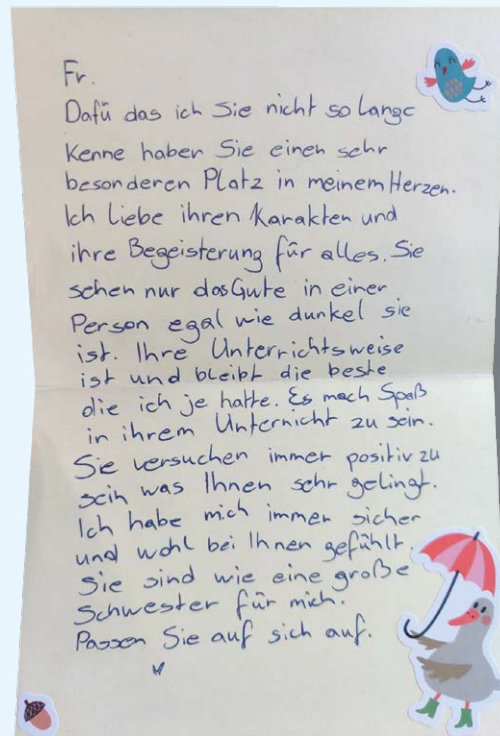 Fr.
Dafü das ich Sie nicht so lange
kenne haben Sie einen sehr
besonderen Platz in meinem Herzen.
Ich liebe ihren Karakten und
ihre Begeisterung für alles. Sie
sehen nur das Gute in einer
Person egal wie dunkel sie
ist. Ihre Unterrichtsweise
ist und bleibt die beste
die ich je hatte. Es mach Spaß
in ihrem Unternicht zu sein.
Sie versuchen immer positiv zu
sein was Ihnen sehr gelingt.
Ich habe mich immer sicher
und wohl bei Ihnen gefühlt
Sie sind wie eine große
Schwester für mich.
Passen Sie auf sich auf.